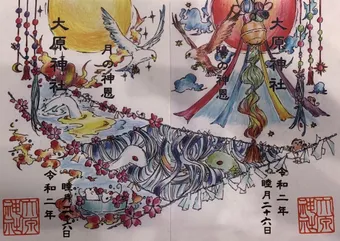 大原神社
月の神恩
令和二年
睦月二十六日
大原神社
大原神社
の神恩
令和二年
睦月二十六日
大原神社